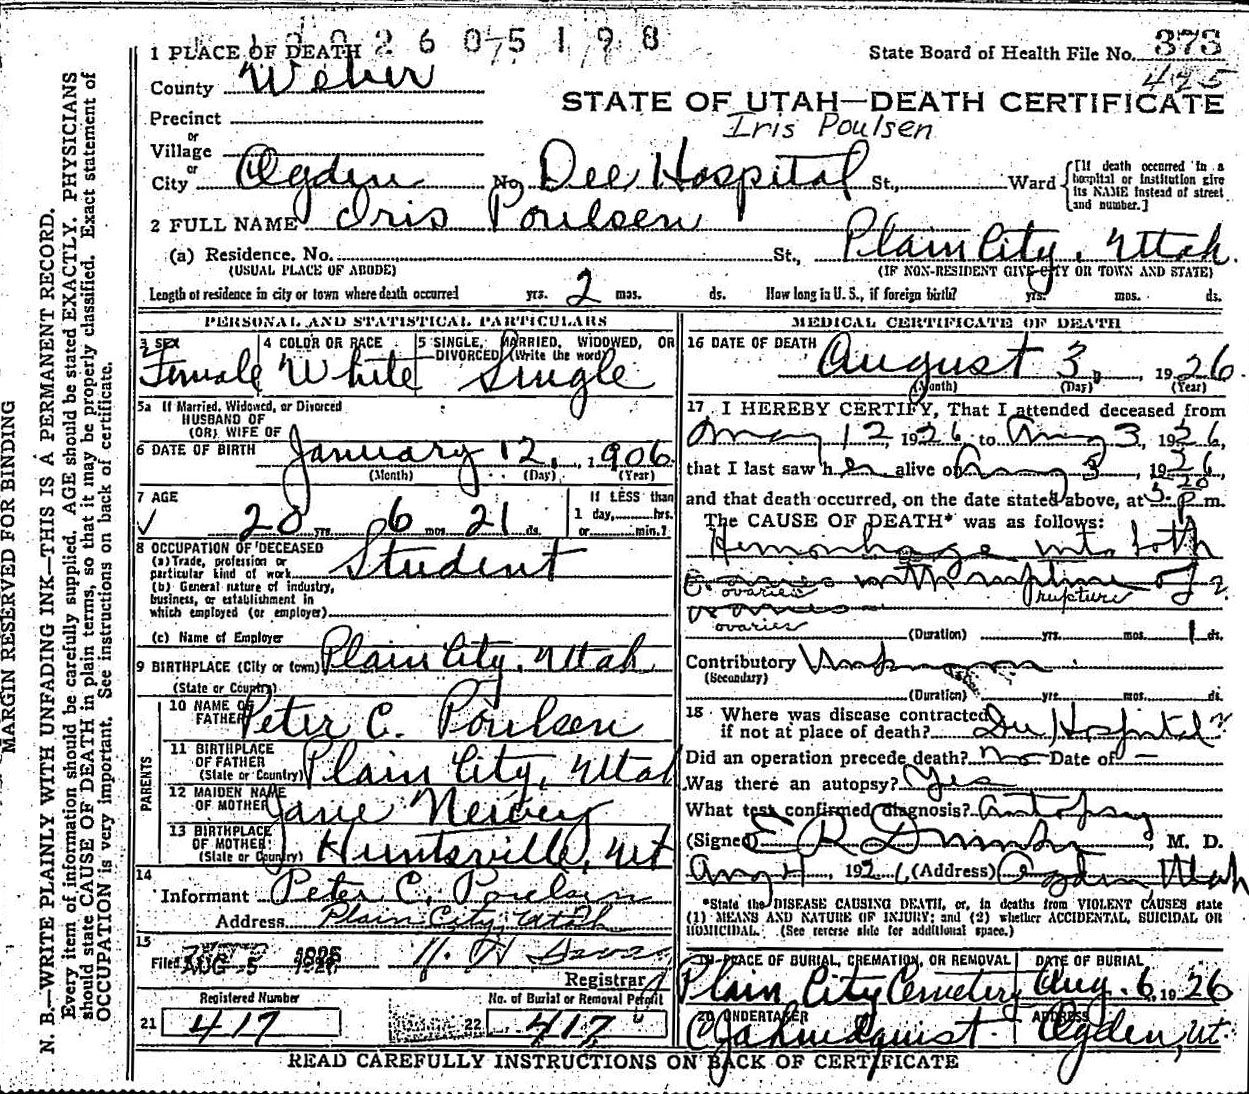 1926 0-5198
1 PLACE OF DEATH
State Board of Health File No. 373
425
County Weber
STATE OF UTAH—DEATH CERTIFICATE
Precinct
Iris Poulsen
or
Village
or
City Ogden No. Dee Hospital St., Ward
[If death occurred in a hospital or institution give its NAME instead of street and number.]
2 FULL NAME Iris Poulsen
(a) Residence. No. St., Plain City, Uttah.
(USUAL PLACE OF ABODE) (IF NON-RESIDENT GIVE CITY OR TOWN AND STATE)
Length of residence in city or town where death occurred yrs. 2 mos. ds. How long in U. S., if foreign birth? yrs. mos. ds.
PERSONAL AND STATISTICAL PARTICULARS
3 SEX 4 COLOR OR RACE 5 SINGLE, MARRIED, WIDOWED, OR DIVORCED (Write the word)
Female White Single
5a If Married, Widowed, or Divorced
HUSBAND OF
(OR) WIFE OF
6 DATE OF BIRTH January 12, 1906
(Month) (Day) (Year)
7 AGE If LESS than
20 yrs. 6 mos. 21 ds. 1 day, hrs. or min.?
8 OCCUPATION OF DECEASED
(a) Trade, profession or particular kind of work Student
(b) General nature of industry, business, or establishment in which employed (or employer)
(c) Name of Employer
9 BIRTHPLACE (City or town) Plain City, Uttah
(State or Country)
PARENTS
10 NAME OF FATHER Peter C. Poulsen
11 BIRTHPLACE OF FATHER (State or Country) Plain City, Uttah
12 MAIDEN NAME OF MOTHER Jane
13 BIRTHPLACE OF MOTHER (State or Country) Huntsville, Ut
14
Informant Peter C. Poulsen
Address Plain City, Utah
15
Filed AUG 5 1926
Registrar
Registered Number No. of Burial or Removal Permit
21 417 22 417
MEDICAL CERTIFICATE OF DEATH
16 DATE OF DEATH August 3, 1926
(Month) (Day) (Year)
17 I HEREBY CERTIFY, That I attended deceased from
May 12, 1926, to Aug 3, 1926,
that I last saw her alive on Aug 3, 1926,
and that death occurred, on the date stated above, at 3.20 p.m.
The CAUSE OF DEATH* was as follows:
Hemorrhage into both
ovaries with rupture of
ovaries rupture
ovaries
(Duration) yrs. mos. 1 ds.
Contributory Unknown
(Secondary)
(Duration) yrs. mos. ds.
18 Where was disease contracted
if not at place of death? Dee Hospital ?
Did an operation precede death? no Date of —
Was there an autopsy? Yes
What test confirmed diagnosis? Autopsy
(Signed) E R , M. D.
Aug 4, 1926, (Address) Ogden, Utah
*State the DISEASE CAUSING DEATH, or, in deaths from VIOLENT CAUSES state
(1) MEANS AND NATURE OF INJURY; and (2) whether ACCIDENTAL, SUICIDAL OR
HOMICIDAL. (See reverse side for additional space.)
19 PLACE OF BURIAL, CREMATION, OR REMOVAL DATE OF BURIAL
Plain City Cemetery Aug. 6, 1926
20 UNDERTAKER ADDRESS
Ogden, Ut.
READ CAREFULLY INSTRUCTIONS ON BACK OF CERTIFICATE
MARGIN RESERVED FOR BINDING
N. B.—WRITE PLAINLY WITH UNFADING INK—THIS IS A PERMANENT RECORD.
Every item of information should be carefully supplied. AGE should be stated EXACTLY. PHYSICIANS
should state CAUSE OF DEATH in plain terms, so that it may be properly classified. Exact statement of
OCCUPATION is very important. See instructions on back of certificate.